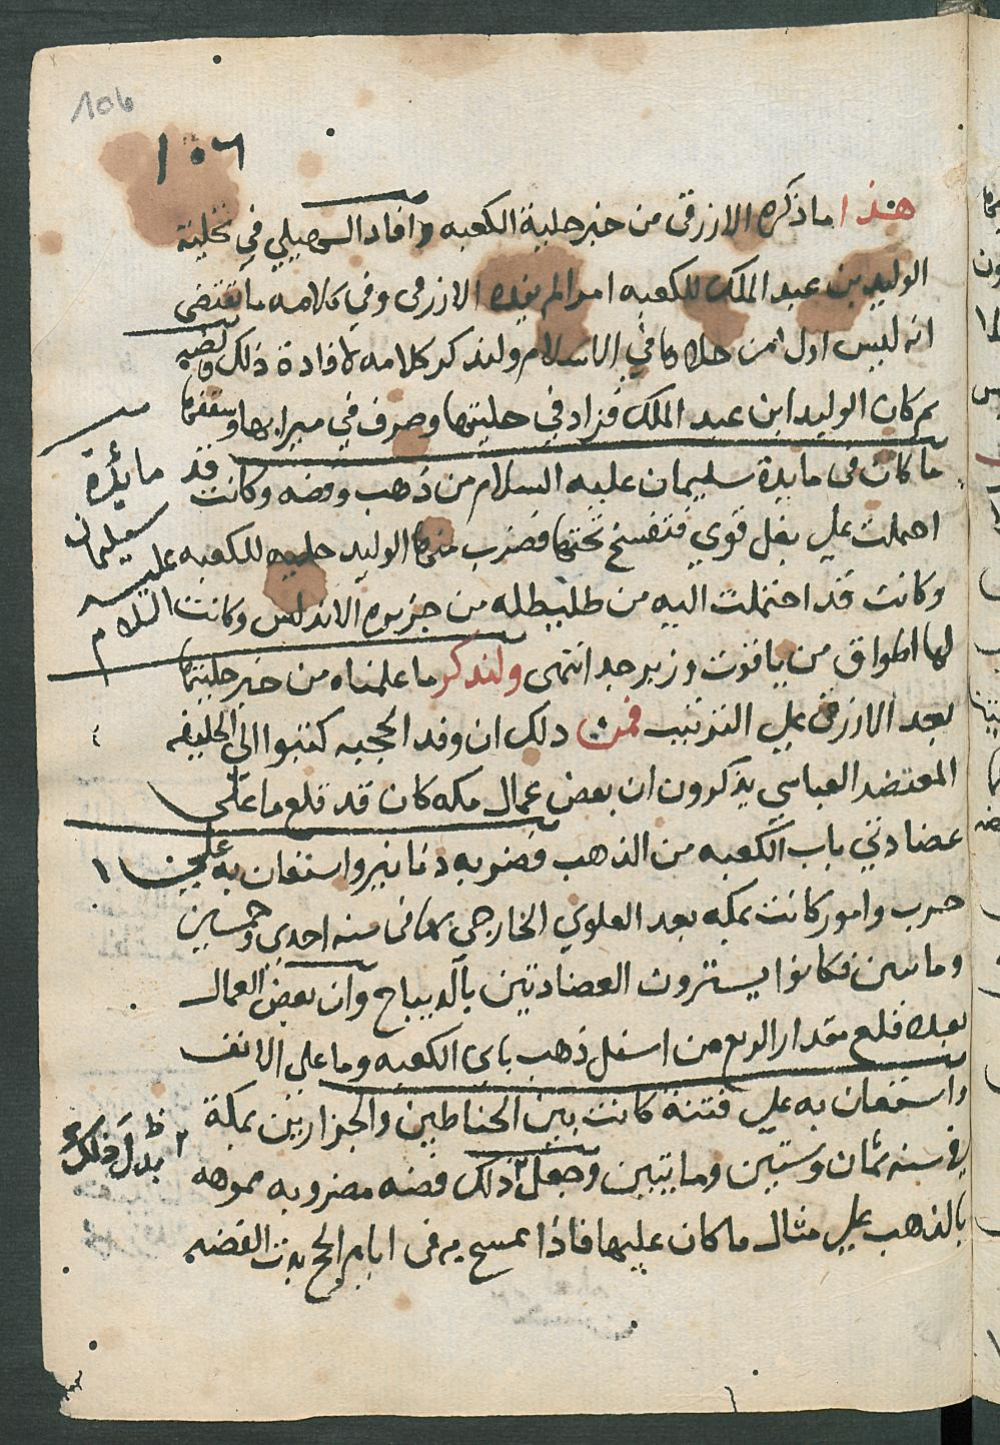 106
١٥٦
هذا ما ذكره الازرقى من خبر حلية الكعبه وافاد السهيلي في تحلية
الوليد بن عبد الملك للكعبه امرا لم يفده الازرقى وفي كلامه ما يقتضى
انه ليس اول من حلاها في الاسلام ولنذكر كلامه لافادة ذلك ونصه
ثم كان الوليد ابن عبد الملك فزاد في حليتها وصرف في ميزابها وسقفها
ما كان فى مايدة سليمان عليه السلام من ذهب وفضه وكانت قد
مائدة
سليمان
عليه
السلام
احملت علي بغل قوي فتفسخ تحتها فضرب منها الوليد حليه للكعبه
وكانت قد احتملت اليه من طليطله من جزيره الاندلس وكانت
لها اطواق من ياقوت وزبرجد انتهى ولنذكر ما علمناه من خبر حليتها
بعد الازرقى علي الترتيب فمن ذلك ان وفد الحجبه كتبوا الى الخليفه
المعتضد العباسي يذكرون ان بعض عمال مكه كان قد قلع ما على
عضادتي باب الكعبه من الذهب فضربه دنانير واستعان به على
حرب وامور كانت بمكه بعد العلوي الخارجي بها فى سنه احدي وخمسين
وماتين فكانوا يسترون العضادتين بالديباج وان بعض العمال
بعده قلع مقدار الربع من اسفل ذهب باب الكعبه وما على الانف
واستعان به علي فتنة كانت بين الحناطين والجزارين بمكة
في سنه ثمان وستين ومايتين وجعل ٢ ذلك فضه مضروبه مموهه
٢ بدل ذلك
بالذهب علي مثال ما كان عليها فاذا تمسح به فى ايام الحج بدت الفضه